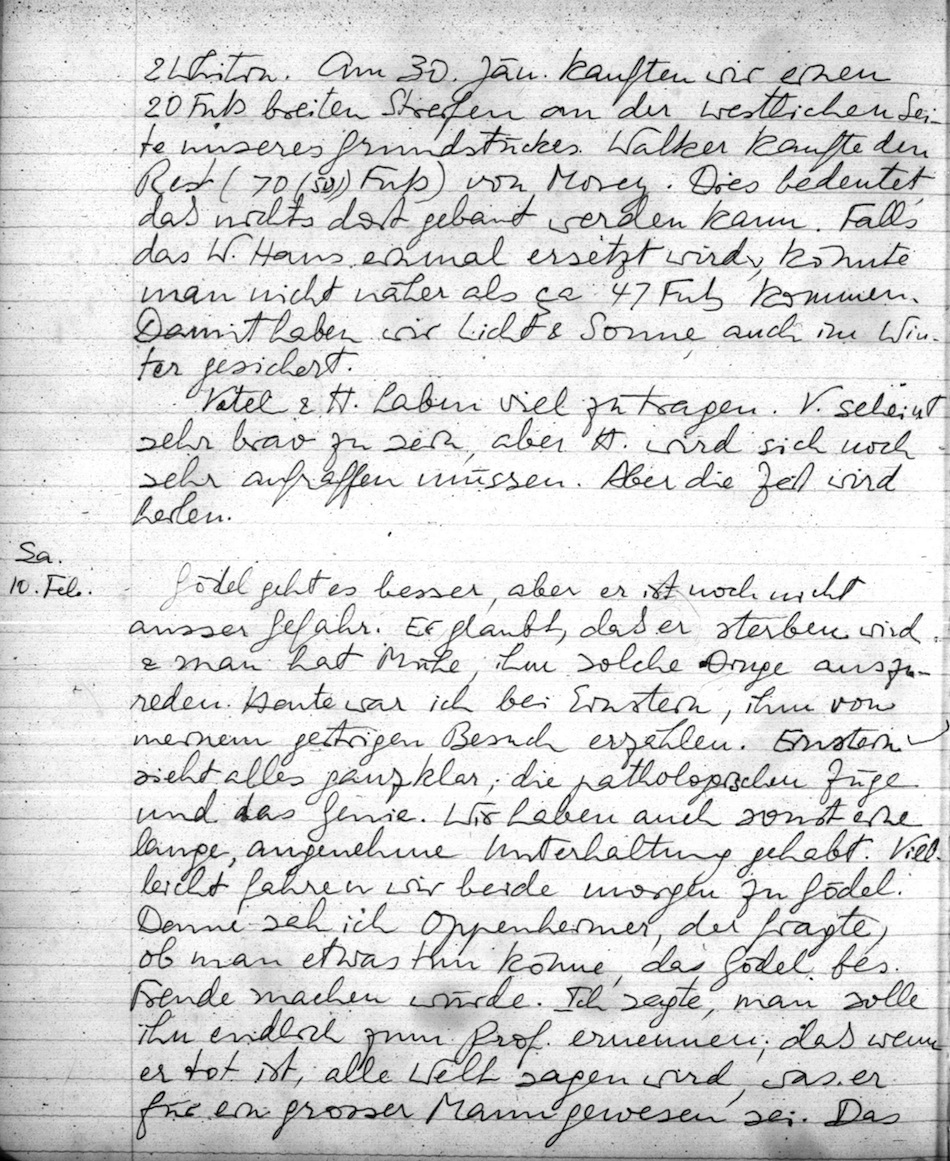 & Whiton. Am 30. Jän. kauften wir einen
20 Fuß breiten Streifen an der westlichen Sei-
te unseres Grundstückes. Walker kaufte den
Rest (70 (50)) Fuß) von Morey. Dies bedeutet,
daß nichts dort gebaut werden kann. Falls
das W. Haus einmal ersetzt wird, könnte
man nicht näher als ca 47 Fuß kommen.
Damit haben wir Licht & Sonne auch im Win-
ter gesichert.
& H. haben viel zu tragen. V. scheint
sehr brav zu sein, aber H. wird sich noch
sehr aufraffen müssen. Aber die Zeit wird
heilen.
Sa.
10. Feb.
Gödel geht es besser, aber er ist noch nicht
ausser Gefahr. Er glaubt, daß er sterben wird
& man hat Mühe, ihm solche Dinge auszu-
reden. Heute war ich bei Einstein, ihm von
meinem gestrigen Besuch erzählen. Einstein
sieht alles ganz klar; die pathologischen Züge
und das Genie. Wir haben auch sonst eine
lange, angenehme Unterhaltung gehabt. Viel-
leicht fahren wir beide morgen zu Gödel.
Dann sah ich Oppenheimer, der fragte,
ob man etwas tun könne, das Gödel bes.
Freude machen würde. Ich sagte, man solle
ihn endlich zum Prof. ernennen; daß wenn
er tot ist, alle Welt sagen wird, was er
für ein grosser Mann gewesen sei. Das